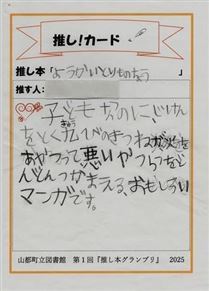 推し!カード
推し本「ようかいとりものちょう」
推す人:
子どもなのに、じけん
をとくきゅうびのきつねが火を
あやつって悪いやつらをど
んどんつかまえる、おもしろい
マンガです。
山都町立図書館 第1回『推し本グランプリ』 2025